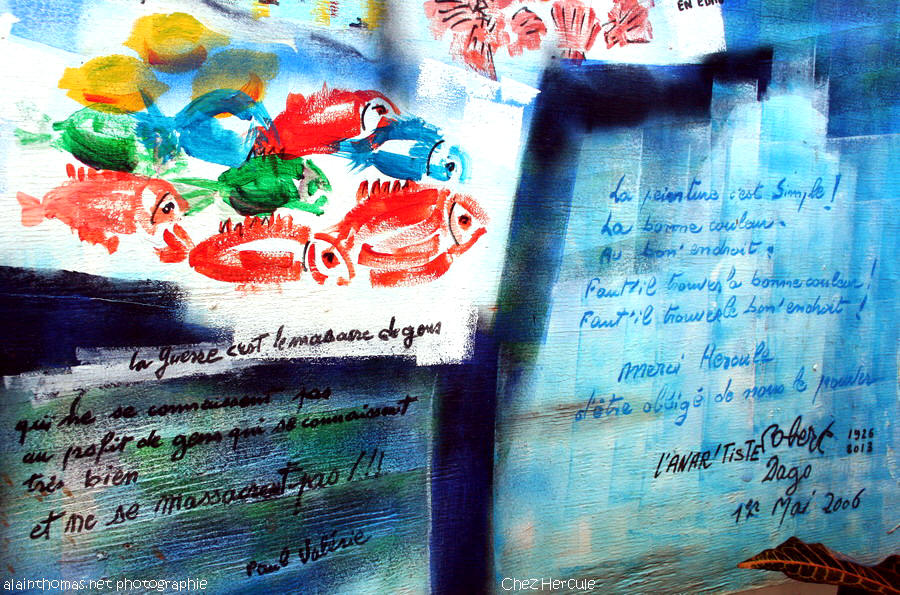 EN EDIN
la guerre c'est le massacre de gens
qui ne se connaissent pas
au profit de gens qui se connaissent
très bien
et ne se massacrent pas !!!
Paul Valérie
La peinture c'est Simple !
La bonne couleur.
Au bon' endroit.
Faut'il trouver la bonne couleur !
Faut'il trouver le bon' endroit !
Merci Hercule
d'être obligé de nous le
L'ANAR'TISTE Robert 1926
2013
Dago
1er Mai 2006
alainthomas.net photographie
Chez Hercule